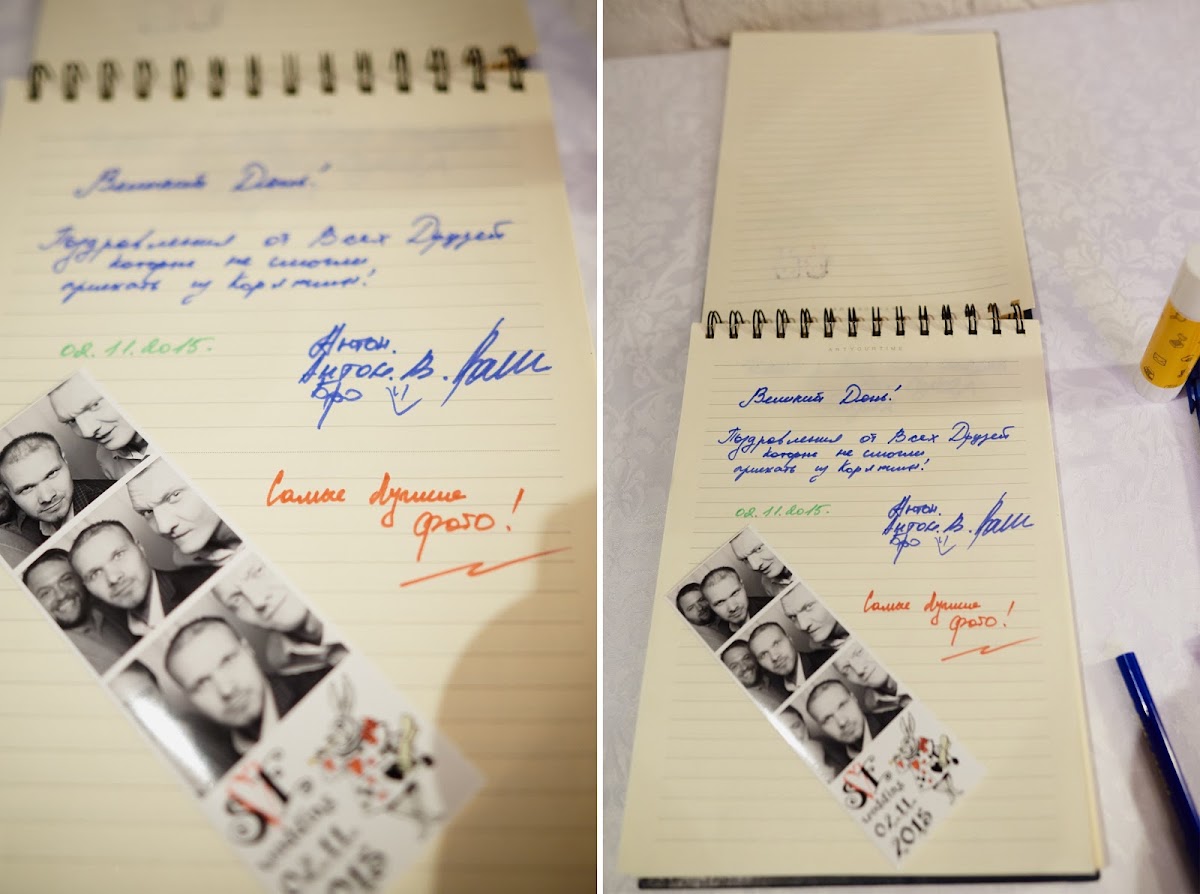 Великий День!
Поздравления от Всех Друзей
которые не смогли
приехать из Коряжмы!
02.11.2015.
Антон.
Антон. В.
бро
Самые лучшие
фото!
S Y F
wedding
02.11.
2015
ARTYOURTIME
Великий День!
Поздравления от Всех Друзей
которые не смогли
приехать из Коряжмы!
02.11.2015.
Антон.
Антон. В.
бро
Самые лучшие
фото!
S Y F
wedding
02.11.
2015